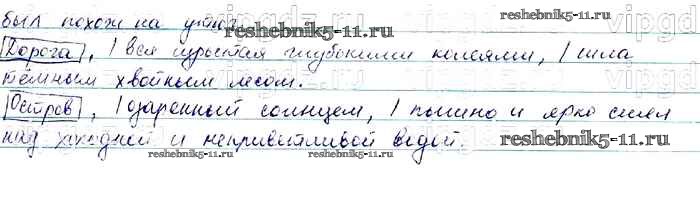 был похож на утюг.
reshebnik5-11.ru
Дорога, | вся изрытая глубокими колеями, | шла
тёмным хвойным лесом.
reshebnik5-11.ru
Остров, | озаренный солнцем, | пышно и ярко сиял
над холодной и неприветливой водой.
reshebnik5-11.ru
reshebnik5-11.ru